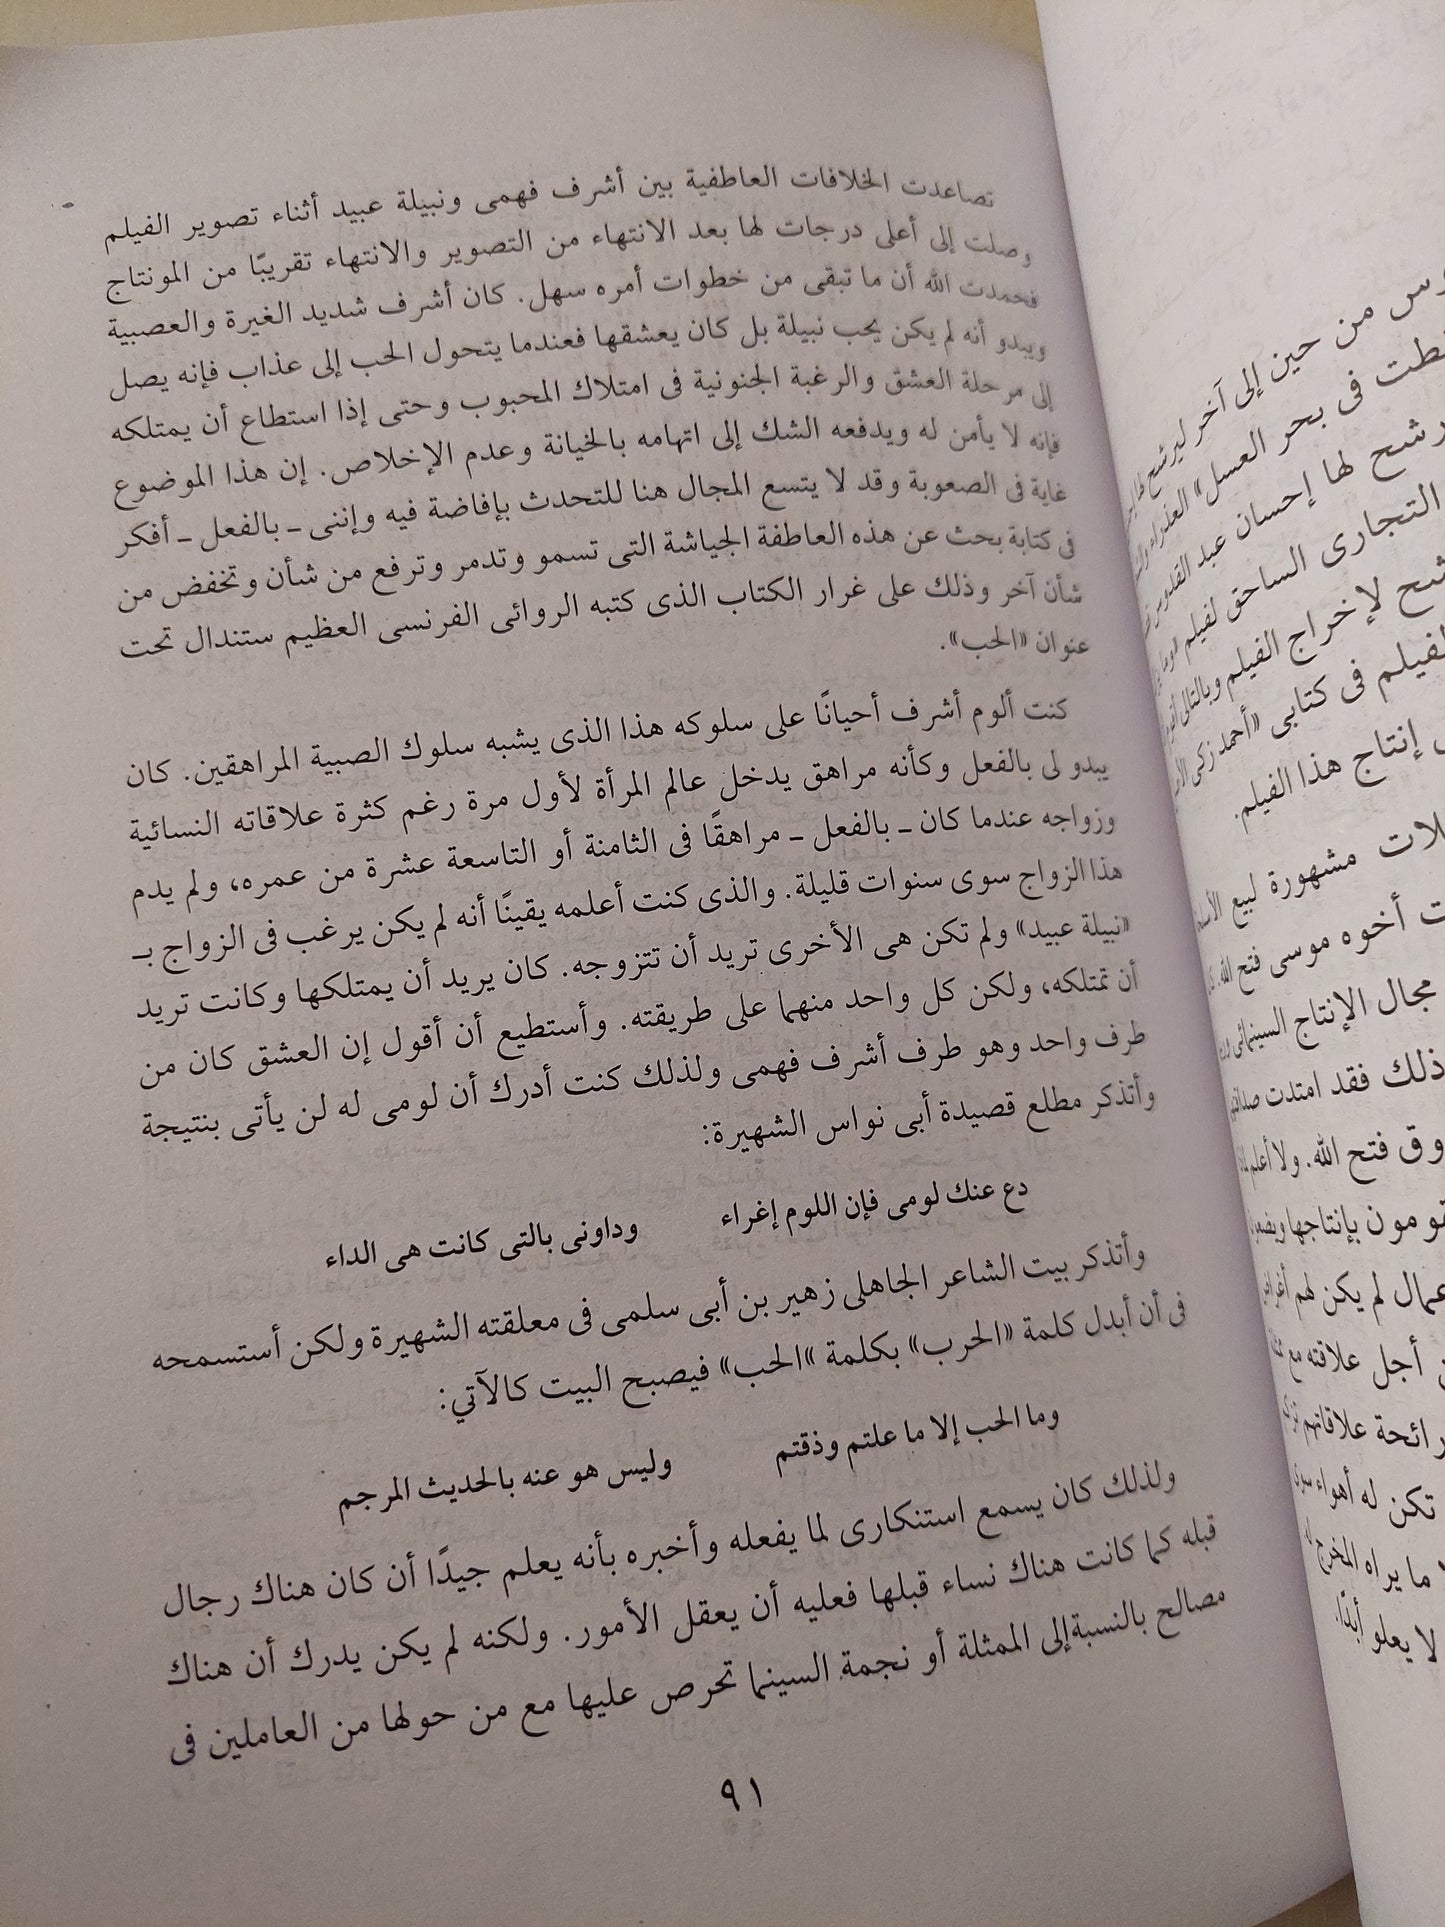 تصاعدت الخلافات العاطفية بين أشرف فهمى ونبيلة عبيد أثناء تصوير الفيلم
وصلت إلى أعلى درجات لها بعد الانتهاء من التصوير والانتهاء تقريبًا من المونتاج
فحمدت الله أن ما تبقى من خطوات أمره سهل. كان أشرف شديد الغيرة والعصبية
ويبدو أنه لم يكن يحب نبيلة بل كان يعشقها فعندما يتحول الحب إلى عذاب فإنه يصل
إلى مرحلة العشق والرغبة الجنونية فى امتلاك المحبوب وحتى إذا استطاع أن يمتلكه
فإنه لا يأمن له ويدفعه الشك إلى اتهامه بالخيانة وعدم الإخلاص. إن هذا الموضوع
غاية فى الصعوبة وقد لا يتسع المجال هنا للتحدث بإفاضة فيه وإننى ـ بالفعل ـ أفكر
فى كتابة بحث عن هذه العاطفة الجياشة التى تسمو وتدمر وترفع من شأن وتخفض من
شأن آخر وذلك على غرار الكتاب الذى كتبه الروائى الفرنسى العظيم ستندال تحت
عنوان «الحب».
كنت ألوم أشرف أحيانًا على سلوكه هذا الذى يشبه سلوك الصبية المراهقين. كان
يبدو لى بالفعل وكأنه مراهق يدخل عالم المرأة لأول مرة رغم كثرة علاقاته النسائية
وزواجه عندما كان ـ بالفعل ـ مراهقًا فى الثامنة أو التاسعة عشرة من عمره، ولم يدم
هذا الزواج سوى سنوات قليلة. والذى كنت أعلمه يقينًا أنه لم يكن يرغب فى الزواج بـ
«نبيلة عبيد» ولم تكن هى الأخرى تريد أن تتزوجه. كان يريد أن يمتلكها وكانت تريد
أن تمتلكه، ولكن كل واحد منهما على طريقته. وأستطيع أن أقول إن العشق كان من
طرف واحد وهو طرف أشرف فهمى ولذلك كنت أدرك أن لومى له لن يأتى بنتيجة
وأتذكر مطلع قصيدة أبى نواس الشهيرة:
دع عنك لومى فإن اللوم إغراء وداونى بالتى كانت هى الداء
وأتذكر بيت الشاعر الجاهلى زهير بن أبى سلمى فى معلقته الشهيرة ولكن أستسمحه
فى أن أبدل كلمة «الحرب» بكلمة «الحب» فيصبح البيت كالآتي:
وما الحب إلا ما علتم وذقتم وليس هو عنه بالحديث المرجم
ولذلك كان يسمع استنكارى لما يفعله وأخبره بأنه يعلم جيدًا أن كان هناك رجال
قبله كما كانت هناك نساء قبلها فعليه أن يعقل الأمور. ولكنه لم يكن يدرك أن هناك
مصالح بالنسبة إلى الممثلة أو نجمة السينما تحرص عليها مع من حولها من العاملين فى
٩١
من حين إلى آخر ليرشح لها
فى بحر العسل» العذراء
لها إحسان عبد القدوس
التجارى الساحق لفيلم
لإخراج الفيلم وبالتالى
فى كتابى «أحمد زكى
إنتاج هذا الفيلم.
مشهورة لبيع
أخوه موسى فتح الله.
مجال الإنتاج السينمائى
ذلك فقد امتدت
فتح الله. ولا أعلم
بإنتاجها
لم يكن لهم
أجل علاقته مع
رائحة علاقاتهم
تكن له أهواء سوى
ما يراه المخرج
لا يعلو أبدًا.